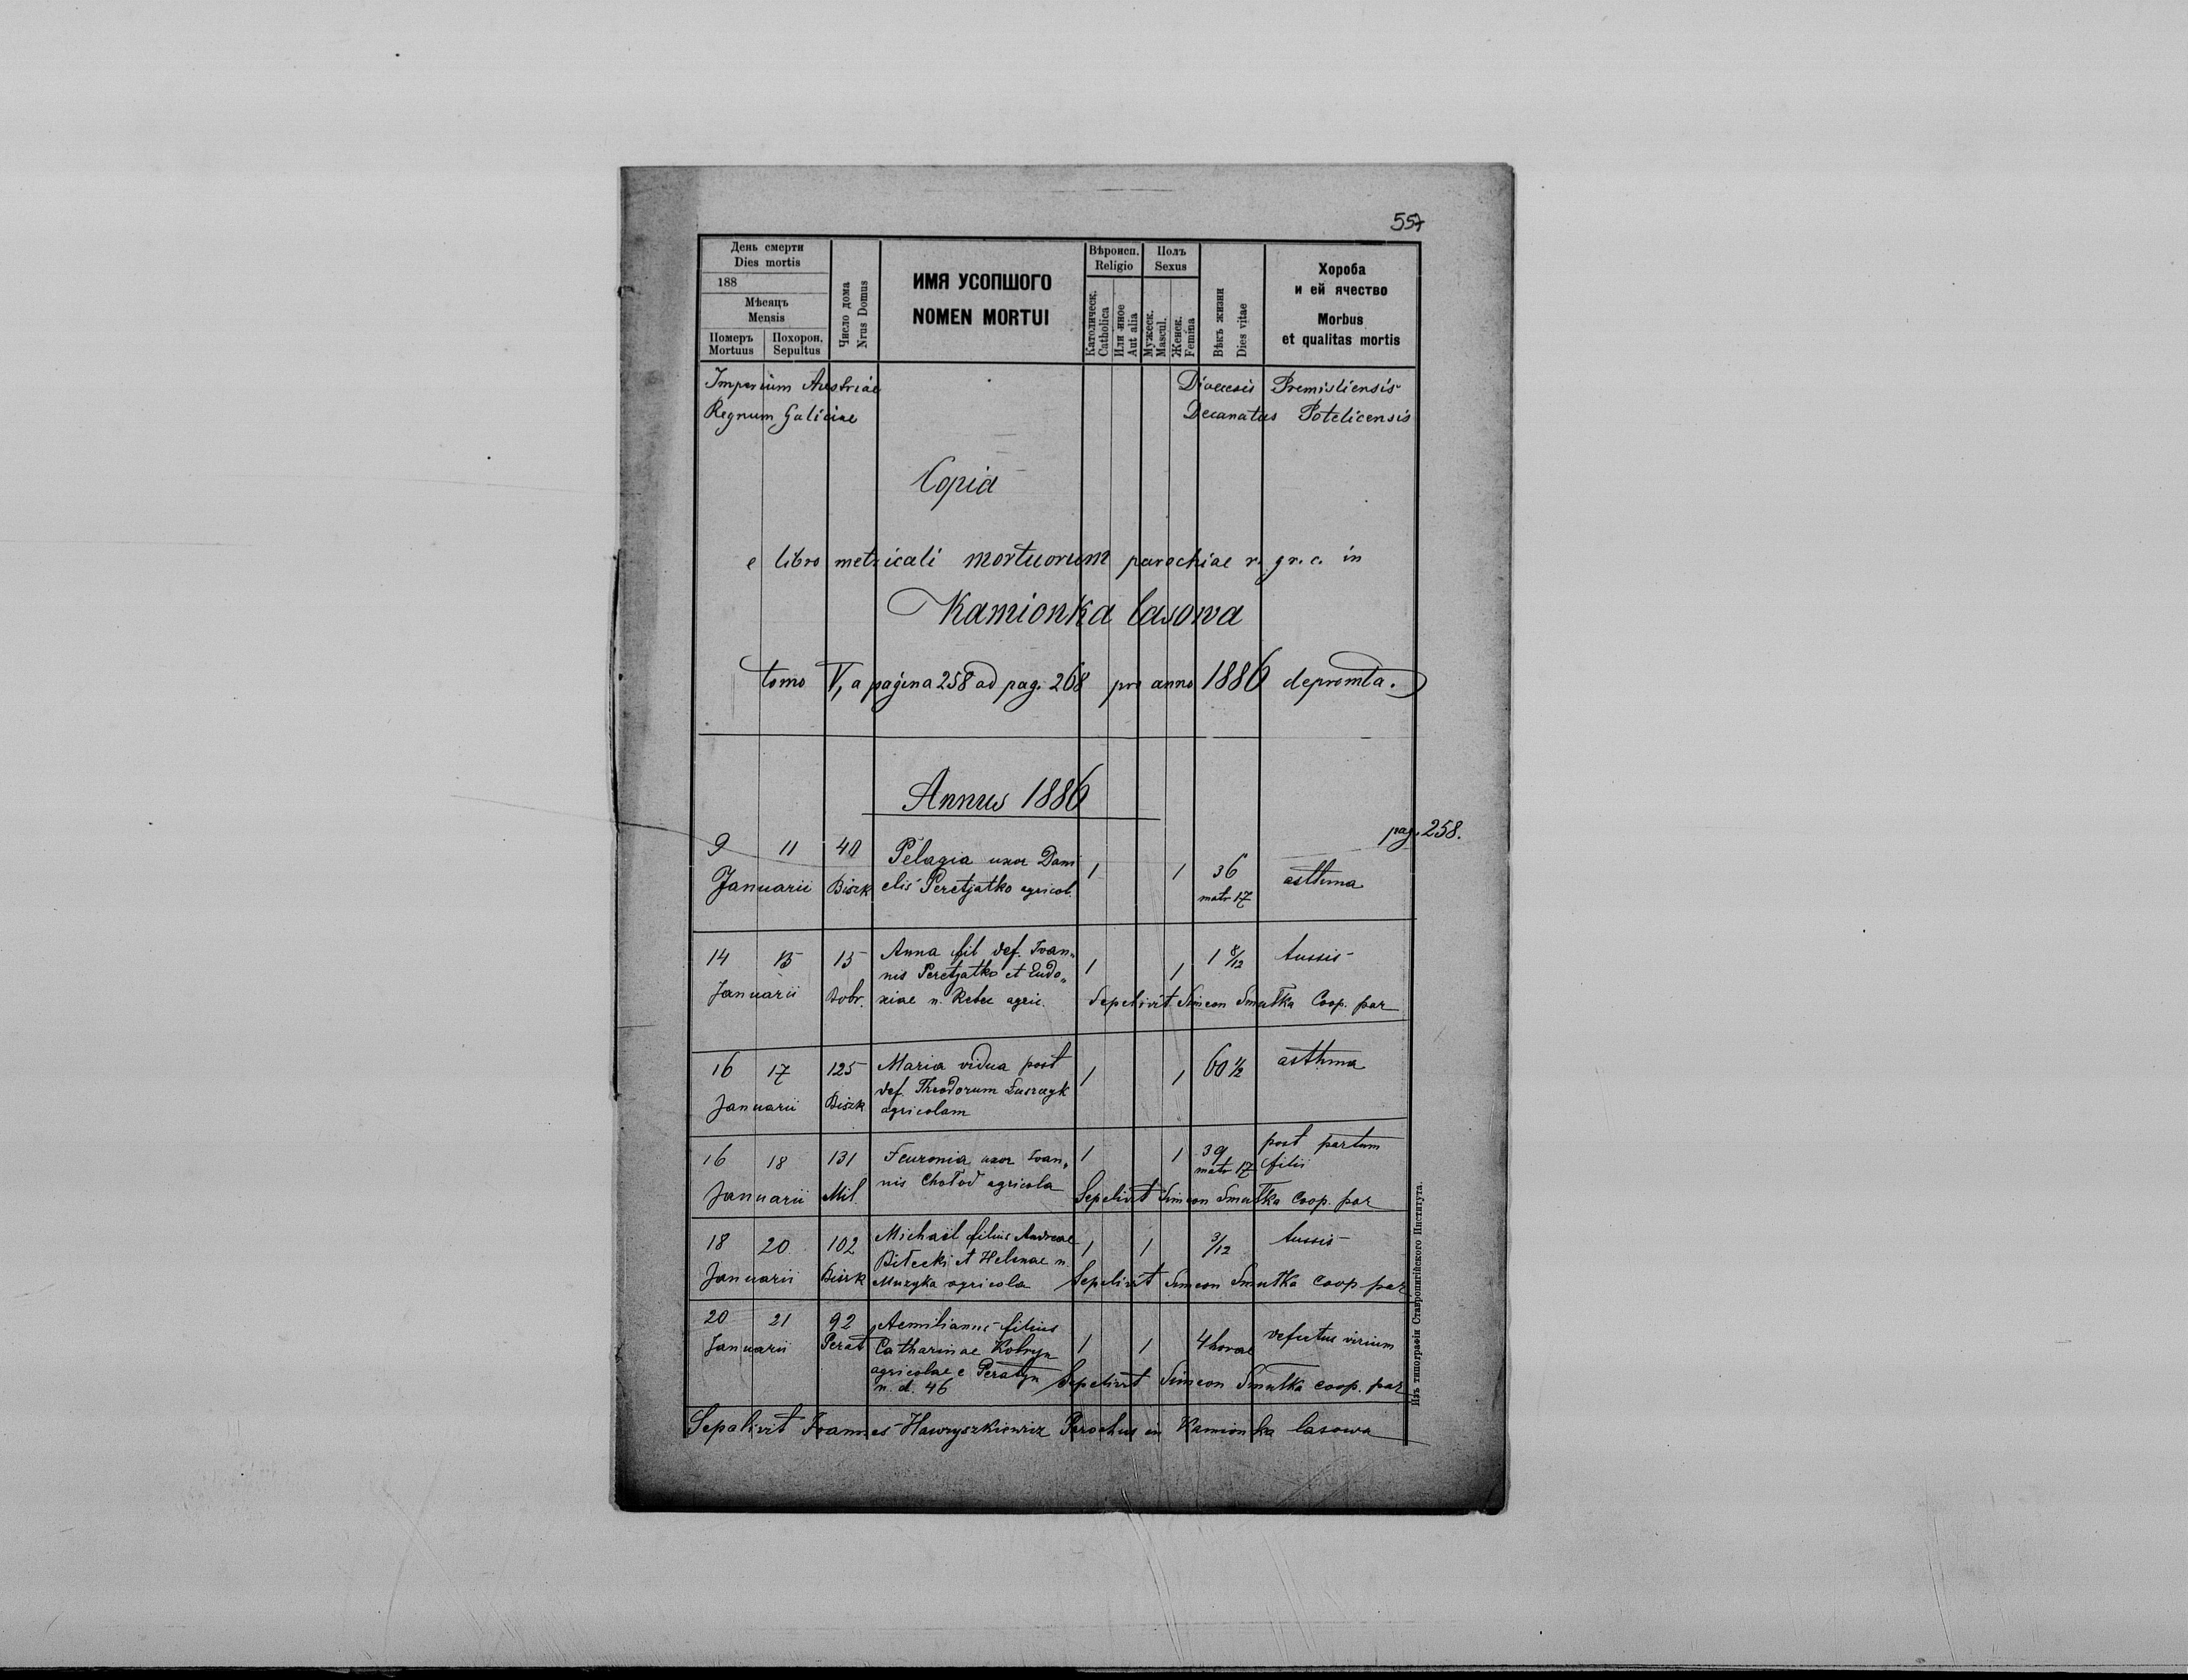 557
День смерти
Dies mortis
188
Мѣсяць
Mensis
Померъ Mortuus
Похорон. Sepultus
Число дома
Nrus Domus
ИМЯ УСОПШОГО
NOMEN MORTUI
Вѣроисп.
Religio
Католическ.
Catholica
Или иное
Aut alia
Полъ
Sexus
Мужеск.
Mascul.
Женск.
Femina
Вѣкъ жизни
Dies vitae
Хороба
и ей ячество
Morbus
et qualitas mortis
Imperium Austriae Diocesis Premisliensis
Regnum Galiciae Decanatus Potelicensis
Copia
e libro metricali mortuorum parochiae r. gr. c. in
Kamionka lasowa
tomo V, a pagina 258 ad pag. 268 pro anno 1886 depromta.
Annus 1886
pag. 258.
9 11 40 Pelagia uxor Dani
Januarii Biszk elis Peretjatko agricol. 1 1 36 asthma
matr 17
14 15 15 Anna fil def. Ioan„ 1 8/12 tussis
nis Peretjatko et Eudo„ 1 1
Januarii Dobr. xiae n. Rebec agric. Sepelivit Simeon Smutka Coop. par
16 17 125 Maria vidua post 1 1 60 1/2 asthma
Januarii Biszk def. Theodorum Łuszczyk
agricolam
16 18 131 Feuronia uxor Ioan„ 1 1 39 post partum
matr 17 filii
Januarii Mil. nis Chołod agricola Sepelivit Simeon Smutka Coop. par
18 20 102 Michaël filius Andreae 1 1 3/12 tussis
Biłecki et Helenae n.
Januarii Biszk Muzyka agricola Sepelivit Simeon Smutka coop. par
20 21 92 Aemilianus filius
Januarii Perat Catharinae Kobryn 1 1 4 horae defectus virium
agricolae e Peratyn Sepelivit Simeon Smutka coop. par
n. d. 46
Sepelivit Ioannes Hawryszkiewicz Parochus in Kamionka lasowa
Изъ типографіи Ставропигійского Института.